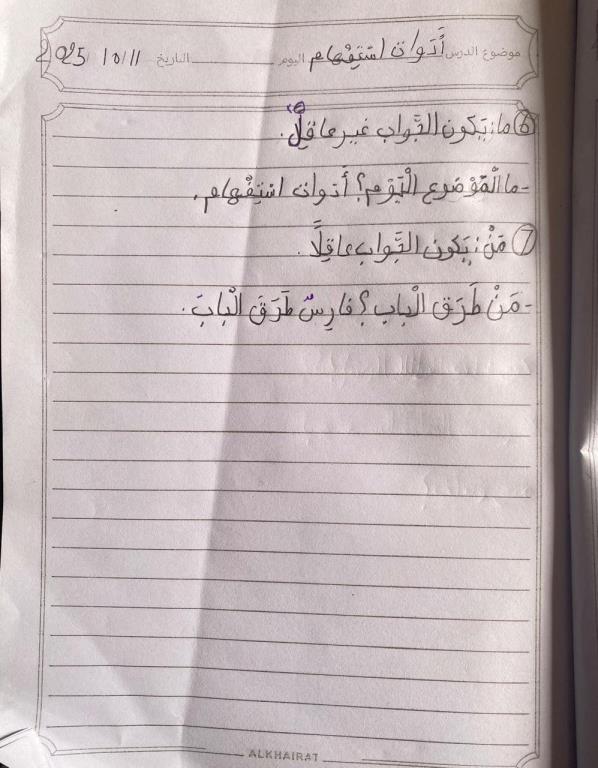 موضوع الدرس أَدَوات اسْتِفْهام اليوم ________ التاريخ 2025/10/11
⑥ ما: يَكون الجَّواب غير عاقِلٌ.
- ما الْمَوْضوع الْيَوْم؟ أَدوات اسْتِفْهام.
⑦ مَنْ: يَكون الجَّواب عاقِلًا.
- مَنْ طَرَقَ الْباب؟ فارِسٌ طَرَقَ الْبابَ.
ALKHAIRAT